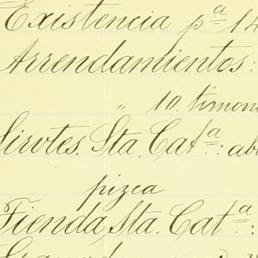 Existencia pª 14
Arrendamientos:
" 10. timon
Sirvtes. Sta. Catª: ab
pizca
Tienda, Sta. Catª: